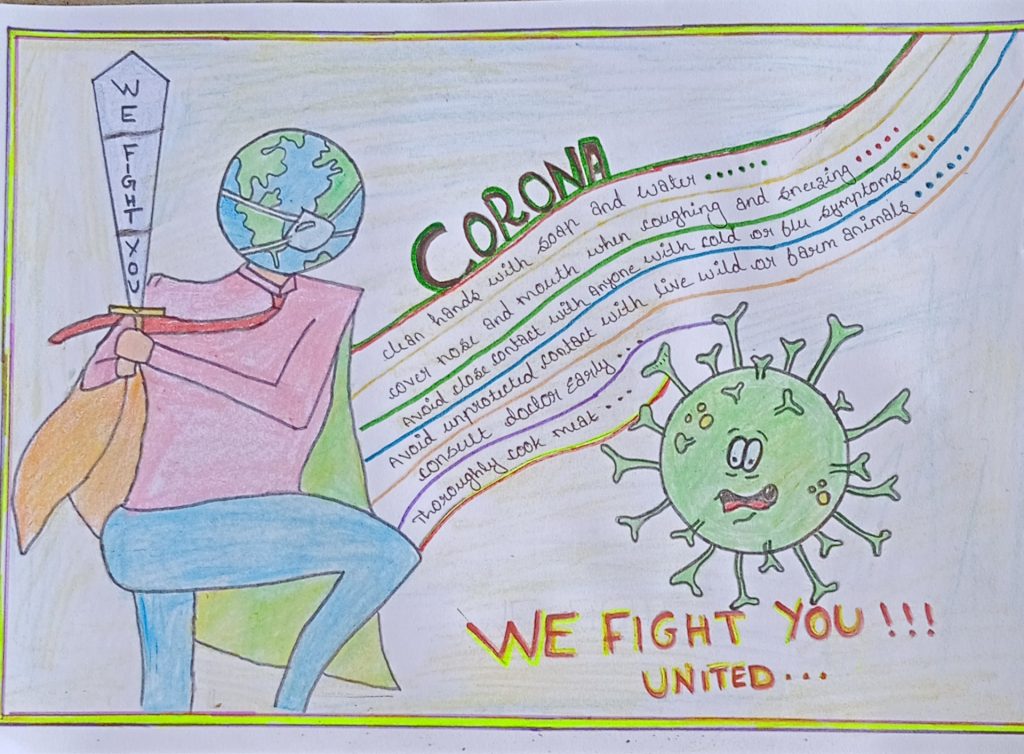 WE
FIGHT
YOU
CORONA
clean hands with soap and water ......
cover nose and mouth when coughing and sneezing .....
Avoid close contact with anyone with cold or flu symptoms ....
Avoid unprotected contact with live wild or farm animals .....
consult doctor early ...
Thoroughly cook meat ....
WE FIGHT YOU !!!
UNITED ...